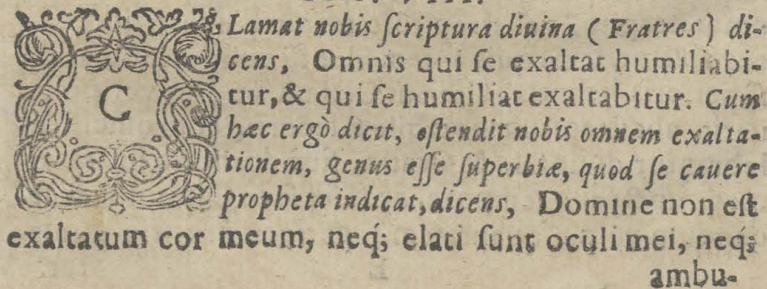 CLamat nobis ſcriptura diuina ( Fratres ) di-
cens, Omnis qui ſe exaltat humiliabi-
tur, & qui ſe humiliat exaltabitur. Cum
hæc ergò dicit, oſtendit nobis omnem exalta-
tionem, genus eſſe ſuperbiæ, quod ſe cauere
propheta indicat, dicens, Domine non eſt
exaltatum cor meum, neq; elati ſunt oculi mei, neq;
ambu-